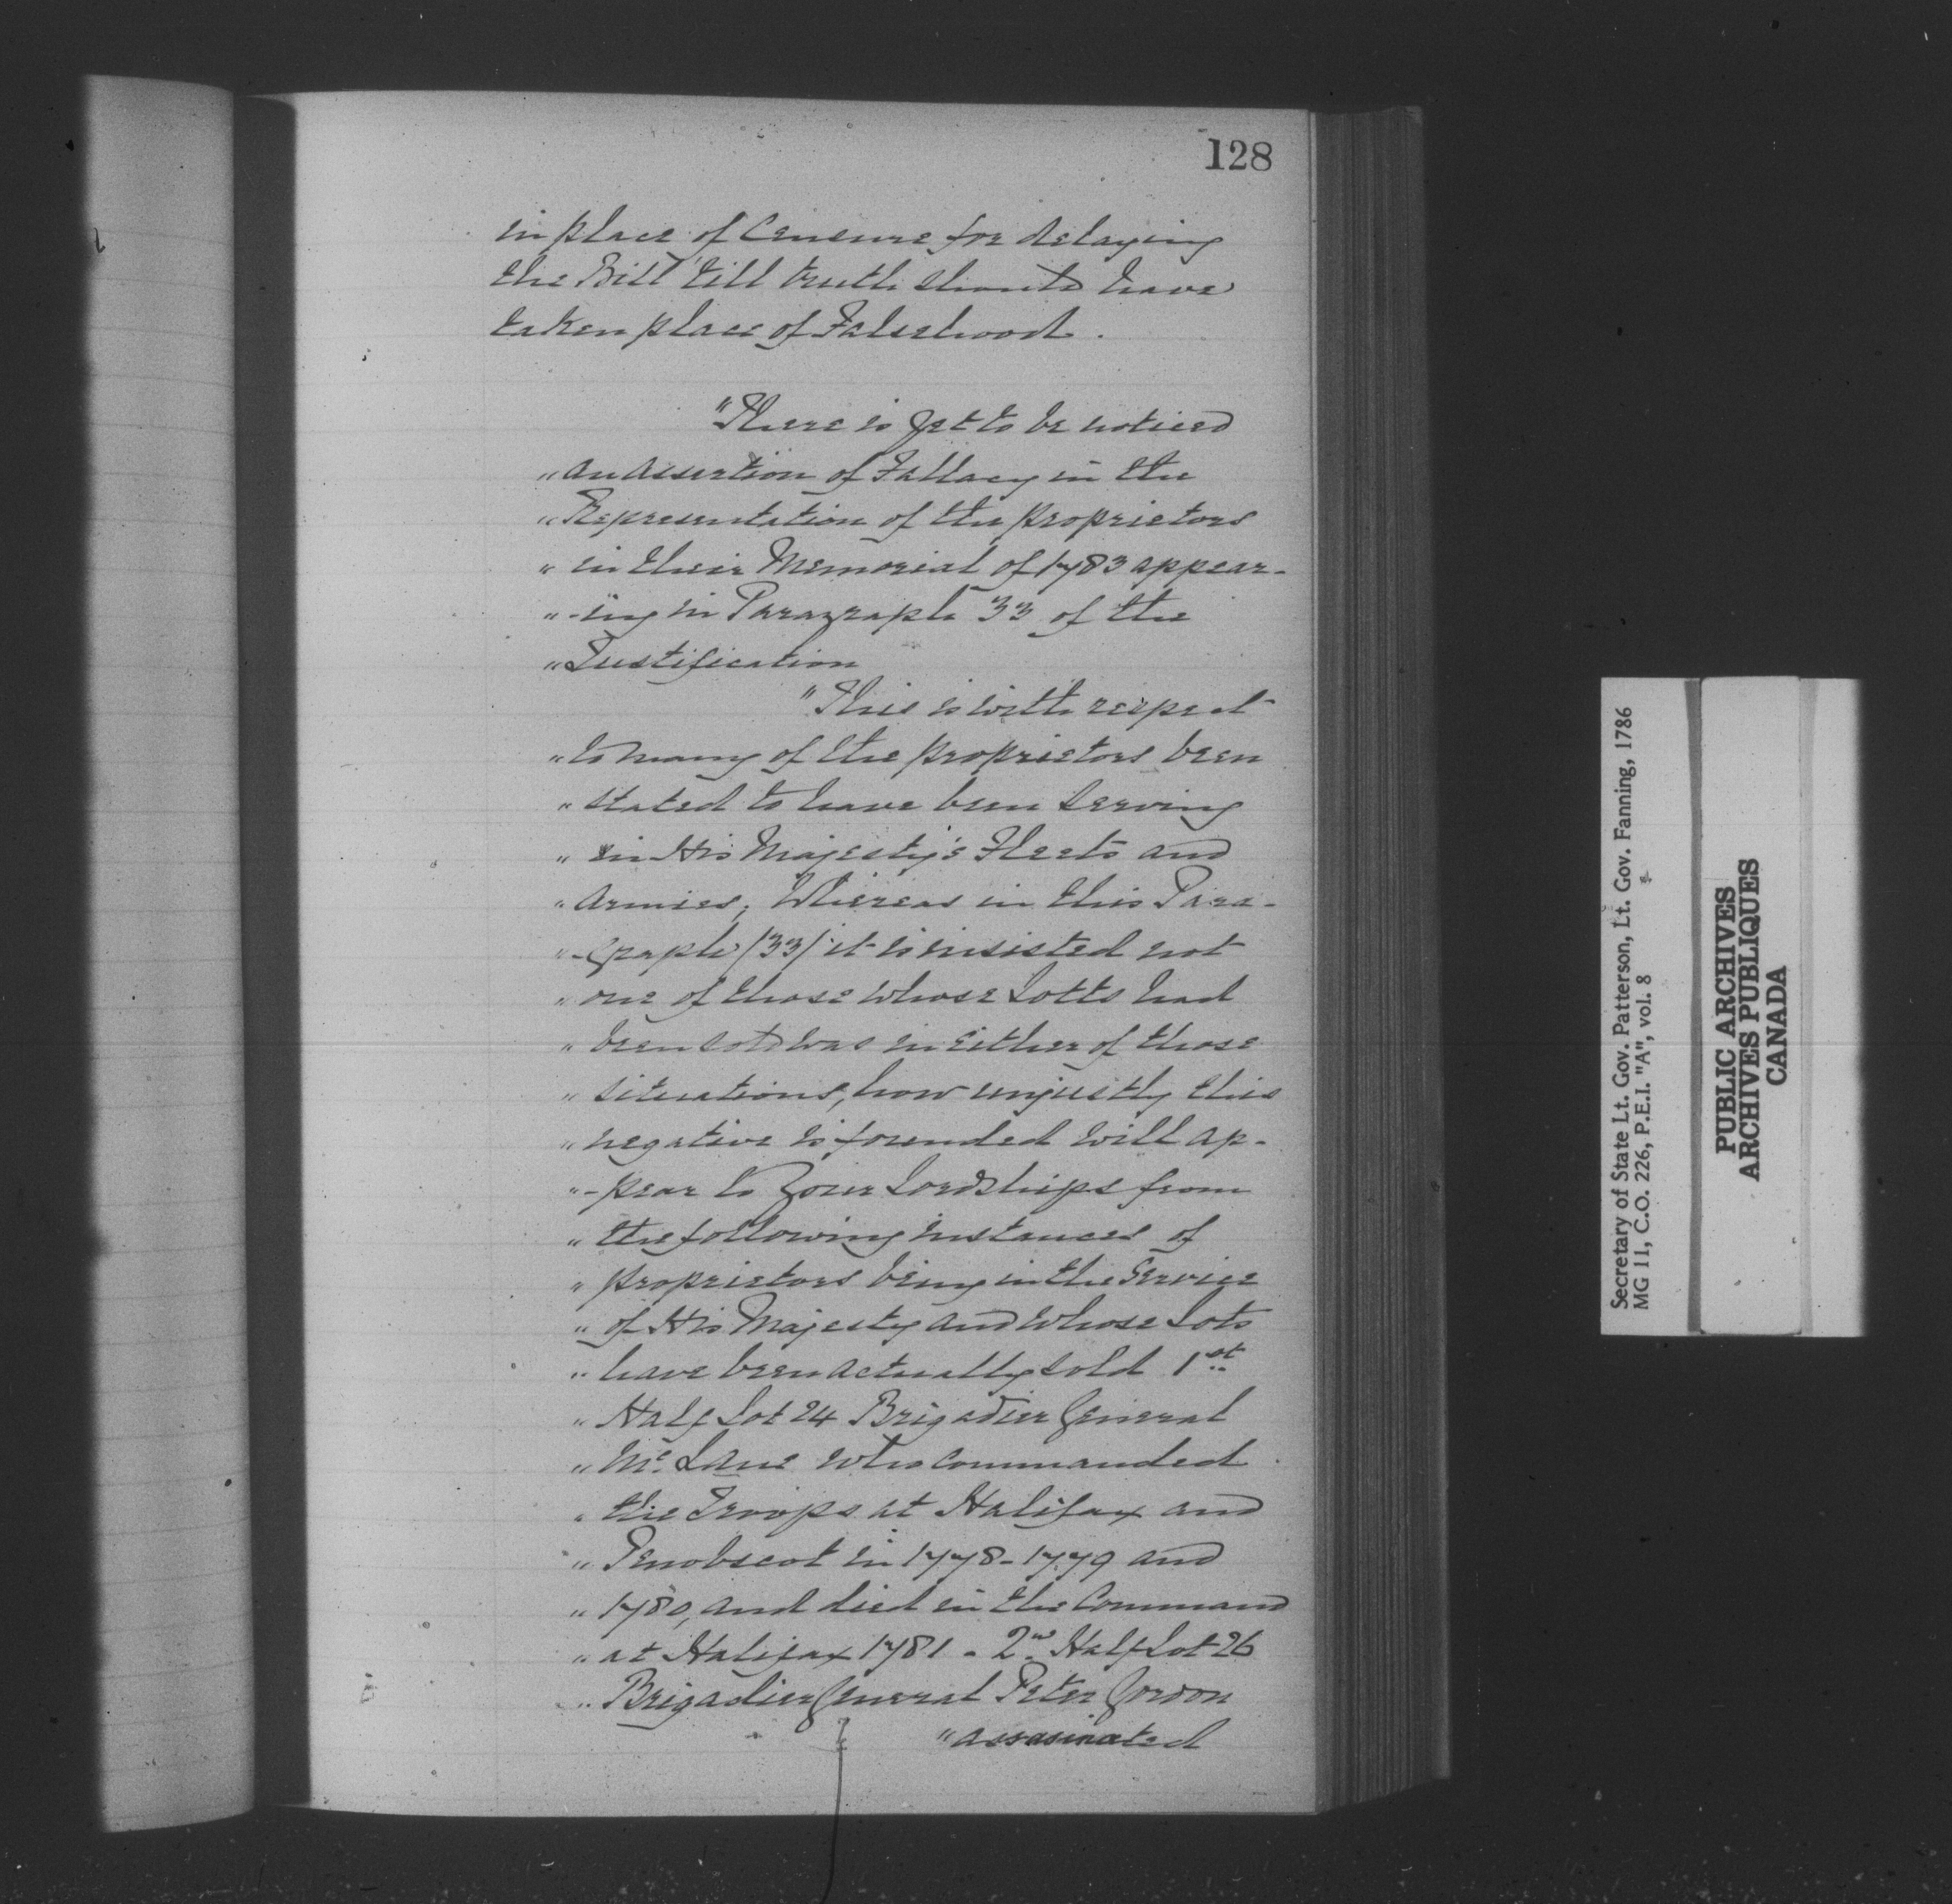 128
in place of Censure for delaying
the Bill till truth should have
taken place of Falsehood.
"There is yet to be noticed
"an Assertion of Fallacy in the
"Representation of the proprietors
"in their Memorial of 1783 appear-
"-ing in Paragraph 33 of the
"Justification
"This is with respect
"to many of the proprietors been
"stated to have been serving
"in His Majesty's Fleets and
"Armies; Whereas in this Para-
"-graph /33/ it is insisted not
"one of those whose Lotts had
"been sold was in Either of those
"situations, how unjustly this
"negative is founded will ap-
"-pear to Your Lordships from
"the following instances of
"proprietors being in the Service
"of His Majesty and whose Lots
"have been actually sold 1st
"Half Lot 24 Brigadier General
"Mc. Lane who commanded
"the Troops at Halifax and
"Penobscot in 1778-1779 and
"1780, and died in the Command
"at Halifax 1781 - 2nd Half Lot 26
"Brigadier General Peter Gordon
"assasinated
Secretary of State Lt. Gov. Patterson, Lt. Gov. Fanning, 1786
MG 11, C.O. 226, P.E.I. "A", vol. 8
PUBLIC ARCHIVES
ARCHIVES PUBLIQUES
CANADA